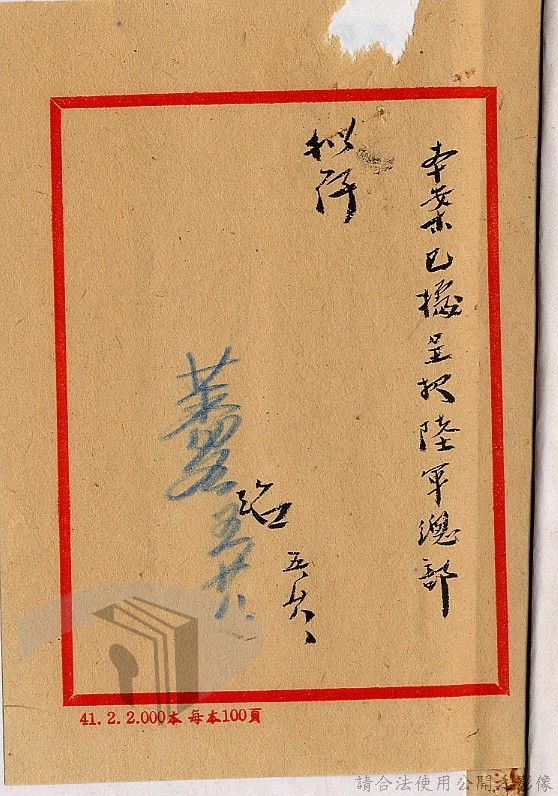 本案已據呈报陸軍總部
拟存
五、六、
五廿八
41. 2. 2.000本 每本100頁
請合法使用公開之影像